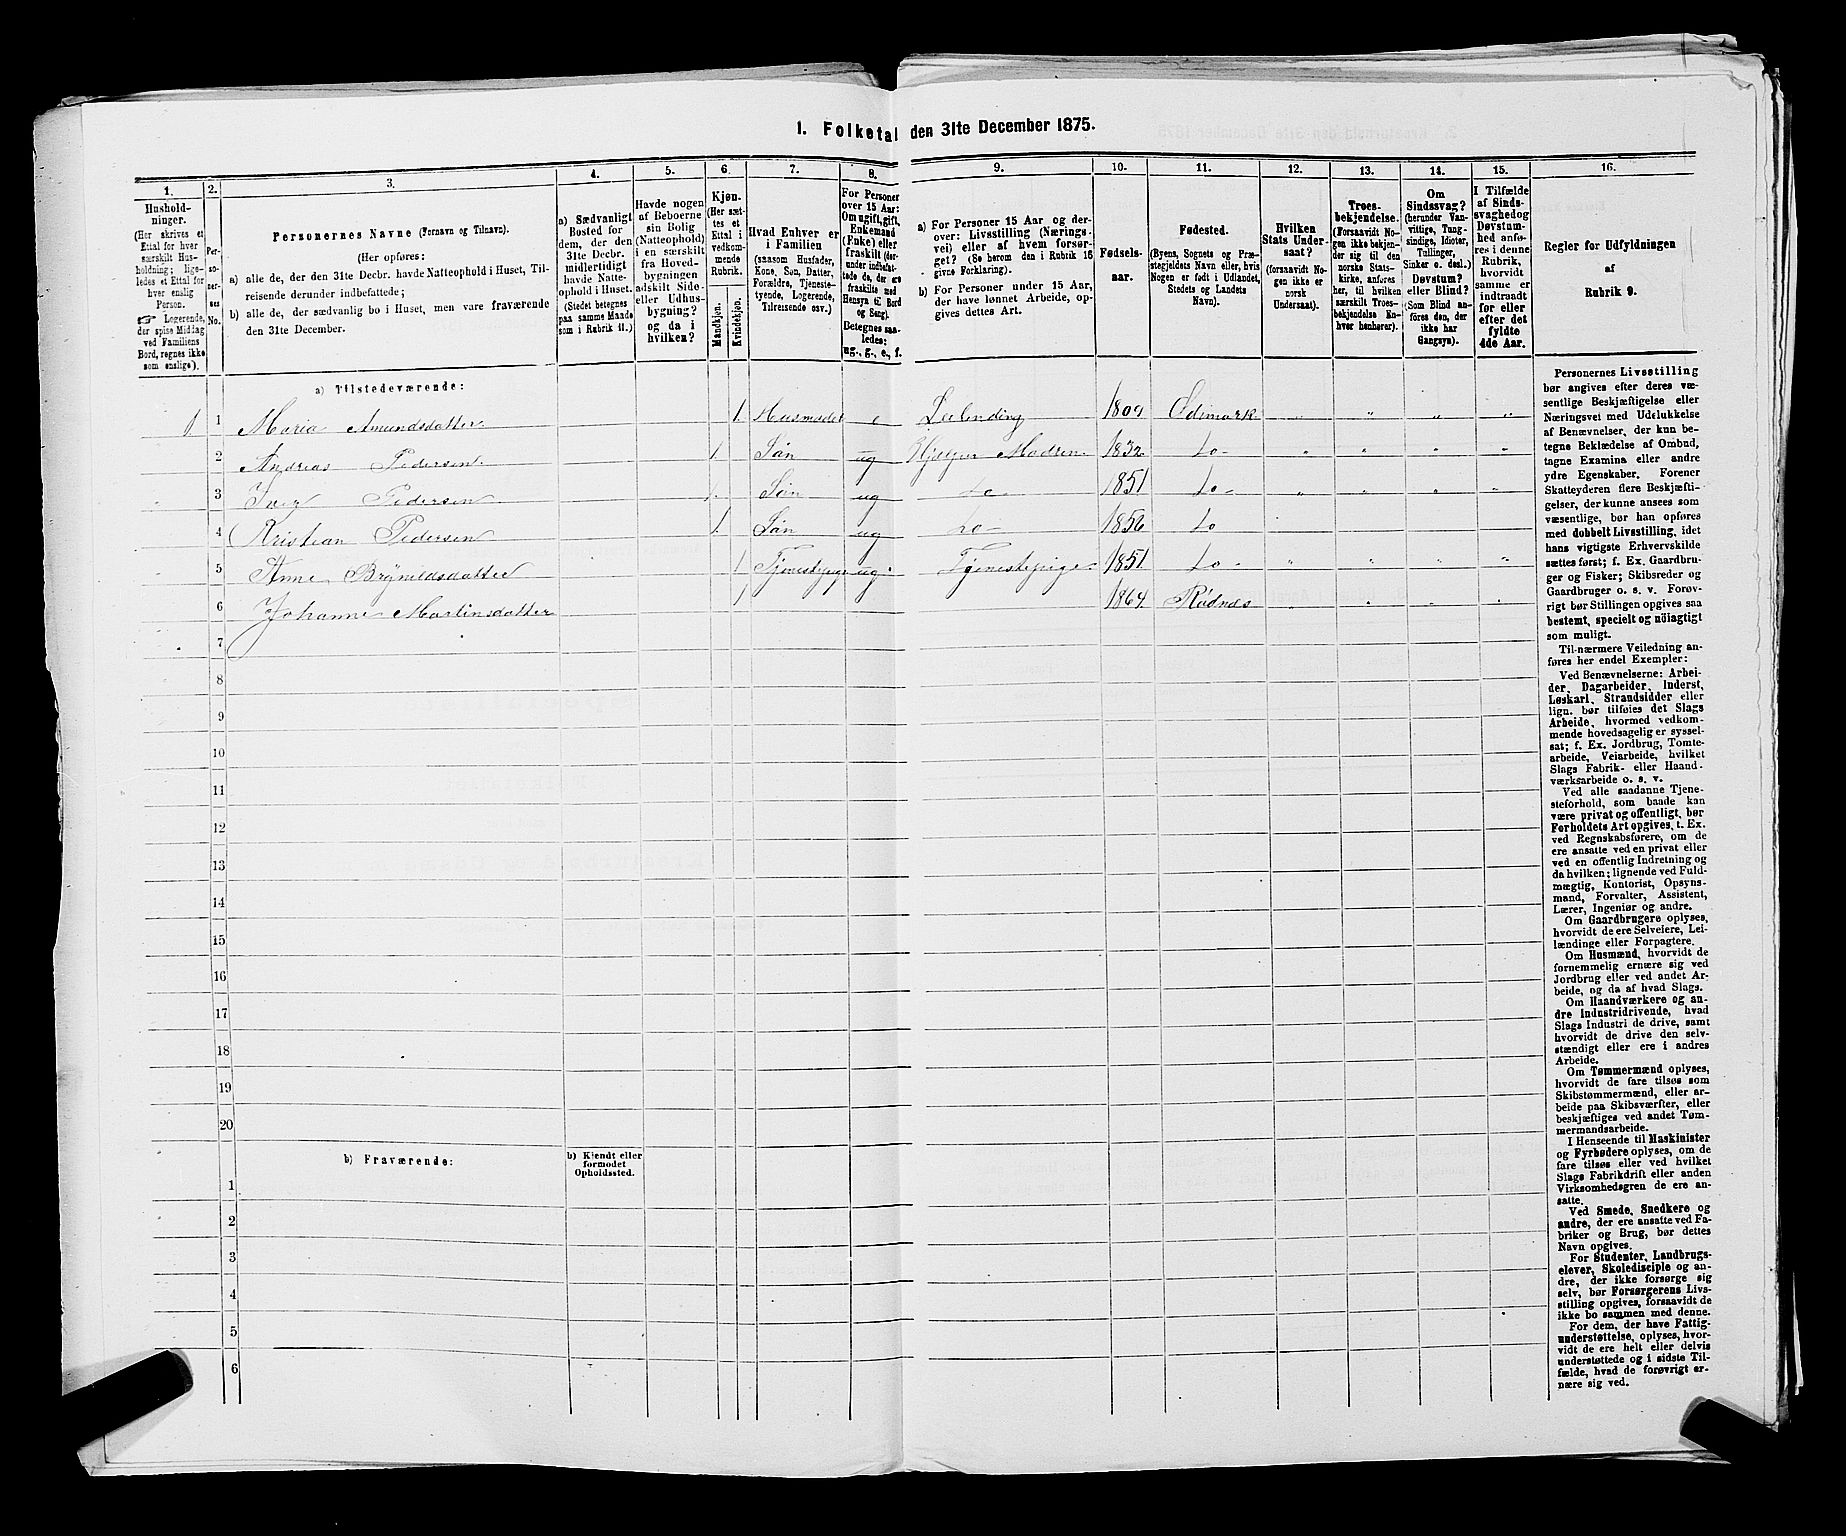 1. Folketal den 31te December 1875.
1.
Hushold-
ninger.
(Her skrives et
Ettal for hver
særskilt Hus-
holdning; lige-
ledes et Ettal for
hver enslig
Person.
Logerende,
der spise Middag
ved Familiens
Bord, regnes ikke
som enslige).
2.
Per-
so-
ner-
nes
No.
3.
Personernes Navne (Fornavn og Tilnavn).
(Her opføres:
a) alle de, der den 31te Decbr. havde Natteophold i Huset, Til-
reisende derunder indbefattede;
b) alle de, der sædvanlig bo i Huset, men vare fraværende
den 31te December.
4.
a) Sædvanligt
Bosted for
dem, der den
31te Decbr.
midlertidigt
havde Natte-
ophold i Huset.
(Stedet betegnes
paa samme Maade
som i Rubrik 11.)
5.
Havde nogen
af Beboerne
sin Bolig
(Natteophold)
i en særskilt
fra Hoved-
bygningen
adskilt Side-
eller Udhus-
bygning?
og da i
hvilken?
6.
Kjøn.
(Her sæt-
tes et
Ettal i
vedkom-
mende
Rubrik.
Mandkjøn.
Kvindekjøn.
7.
Hvad Enhver er
i Familien
(saasom Husfader,
Kone, Søn, Datter,
Forældre, Tjeneste-
tyende, Logerende,
Tilreisende osv.)
8.
For Personer
over 15 Aar:
Om ugift, gift,
Enkemand
(Enke) eller
fraskilt (der-
under indbefat-
tede de, der ere
fraskilte med
Hensyn til Bord
og Seng).
Betegnes saa-
ledes:
ug., g., e., f.
9.
a) For Personer 15 Aar og der-
over: Livsstilling (Nærings-
vei) eller af hvem forsør-
get? (Se herom den i Rubrik 16
givne Forklaring).
b) For Personer under 15 Aar,
der have lønnet Arbeide, op-
gives dettes Art.
10.
Fødsels-
aar.
11.
Fødested.
(Byens, Sognets og Præ-
stegjeldets Navn eller, hvis
Nogen er født i Udlandet,
Stedets og Landets
Navn).
12.
Hvilken
Stats Under-
saat?
(forsaavidt No-
gen ikke er
norsk
Undersaat).
13.
Troes-
bekjendelse.
(Forsaavidt No-
gen ikke bekjen-
der sig til den
norske Stats-
kirke, anføres
her, til hvilken
særskilt Troes-
bekjendelse En-
hver henhører).
14.
Om
Sindssvag?
(herunder Van-
vittige, Tung-
sindige, Idioter,
Tullinger,
Sinker o. desl.)
Døvstum?
eller Blind?
(Som Blind an-
føres den, der
ikke har
Gangsyn).
15.
I Tilfælde
af Sinds-
svaghed og
Døvstum-
hed anfø-
res i denne
Rubrik,
hvorvidt
samme er
indtraadt
før eller
efter det
fyldte
4de Aar.
16.
Regler for Udfyldningen
af
Rubrik 9.
a) Tilstedeværende:
1 1 Maria Amundsdatter 1. Husmoder e Leilending 1809 Ødemark " " " "
2 Andreas Pedersen. 1. Søn ug Hjælper Modren 1832 do " " " "
3 Iver Pedersen 1. Søn ug do 1851 do " " " "
4 Kristian Pedersen 1. Søn ug do 1856 do
5 Anne Brynildsdatter 1 Tjenestepige ug. Tjenestepige 1851 do " " " "
6 Johanne Martinsdatter 1 1864 Rødnæs " " " "
7
8
9
10
11
12
13
14
15
16
17
18
19
20
b) Fraværende:
b) Kjendt eller
formodet
Opholdssted.
1
2
3
4
5
6
Personernes Livsstilling
bør angives efter deres væ-
sentlige Beskjæftigelse eller
Næringsvei med Udelukkelse
af Benævnelser, der kun be-
tegne Beklædelse af Ombud,
tagne Examina eller andre
ydre Egenskaber. Forener
Skatteyderen flere Beskjæfti-
gelser, der kunne ansees som
væsentlige, bør han opføres
med dobbelt Livsstilling, idet
hans vigtigste Erhvervskilde
sættes først; f. Ex. Gaardbru-
ger og Fisker; Skibsreder og
Gaardbruger o. s. v. Forøv-
rigt bør Stillingen opgives saa
bestemt, specielt og nöiagtigt
som muligt.
Til nærmere Veiledning an-
føres her endel Exempler:
Ved Benævnelserne: Arbei-
der, Dagarbeider, Inderst,
Løskarl, Strandsidder eller
lign. bør tilføies det Slags
Arbeide, hvormed vedkom-
mende hovedsagelig er syssel-
sat; f. Ex. Jordbrug, Tomte-
arbeide, Veiarbeide, hvilket
Slags Fabrik- eller Haand-
værksarbeide o. s. v.
Ved alle saadanne Tjene-
steforhold, som baade kan
være privat og offentligt, bør
Forholdets Art opgives, t. Ex.
ved Regnskabsførere, om de
ere ansatte ved en privat eller
ved en offentlig Indretning og
da hvilken; lignende ved Fuld-
mægtig, Kontorist, Opsyns-
mand, Forvalter, Assistent,
Lærer, Ingeniør og andre.
Om Gaardbrugere oplyses,
hvorvidt de ere Selveiere, Lei-
lændinge eller Forpagtere.
Om Husmænd, hvorvidt de
fornemmelig ernære sig ved
Jordbrug eller ved andet Ar-
beide, og da af hvad Slags.
Om Haandværkere og an-
dre Industridrivende, hvad
Slags Industri de drive, samt
hvorvidt de drive den selv-
stændigt eller ere i andres
Arbeide.
Om Tømmermænd oplyses,
hvorvidt de fare tilsøs som
Skibstømmermænd, eller ar-
beide paa Skibsværfter, eller
beskjæftiges ved andet Tøm-
mermandsarbeide.
I Henseende til Maskinister
og Fyrbødere oplyses, om de
fare tilsøs eller ved hvilket
Slags Fabrikdrift eller anden
Virksomhedsgren de ere an-
satte.
Ved Smede, Snedkere og
andre, der ere ansatte ved Fa-
briker og Brug, bør dettes
Navn opgives.
For Studenter, Landbrugs-
elever, Skoledisciple og an-
dre, der ikke forsørge sig
selv, bør Forsørgerens Livs-
stilling opgives, forsaavidt de
ikke bo sammen med denne.
For dem, der have Fattig-
understøttelse, oplyses, hvor-
vidt de ere helt eller delvis
understøttede og i sidste Til-
fælde, hvad de forøvrigt er-
nære sig ved.